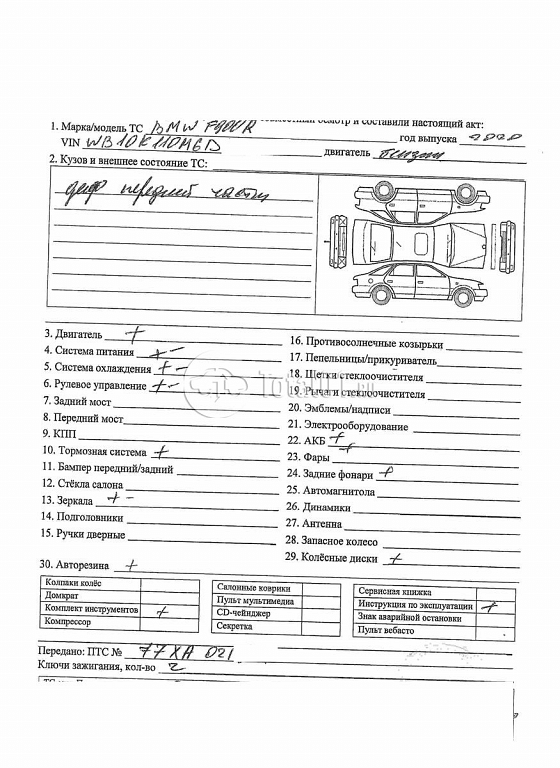 совместный осмотр и составили настоящий акт:
1. Марка/модель ТС BMW F900R год выпуска 2020
VIN WB10K110M6D двигатель бензин
2. Кузов и внешнее состояние ТС:
деф передней части
3. Двигатель +
4. Система питания + -
5. Система охлаждения + -
6. Рулевое управление + -
7. Задний мост
8. Передний мост
9. КПП
10. Тормозная система +
11. Бампер передний/задний
12. Стёкла салона
13. Зеркала + -
14. Подголовники
15. Ручки дверные
16. Противосолнечные козырьки
17. Пепельницы/прикуриватель
18. Щетки стеклоочистителя
19. Рычаги стеклоочистителя
20. Эмблемы/надписи
21. Электрооборудование
22. АКБ +
23. Фары +
24. Задние фонари +
25. Автомагнитола
26. Динамики
27. Антенна
28. Запасное колесо
29. Колёсные диски +
30. Авторезина +
Колпаки колёс
Домкрат
Комплект инструментов +
Компрессор
Салонные коврики
Пульт мультимедиа
CD-чейнджер
Секретка
Сервисная книжка
Инструкция по эксплуатации +
Знак аварийной остановки
Пульт вебасто
Передано: ПТС № 77 ХА 021
Ключи зажигания, кол-во 2